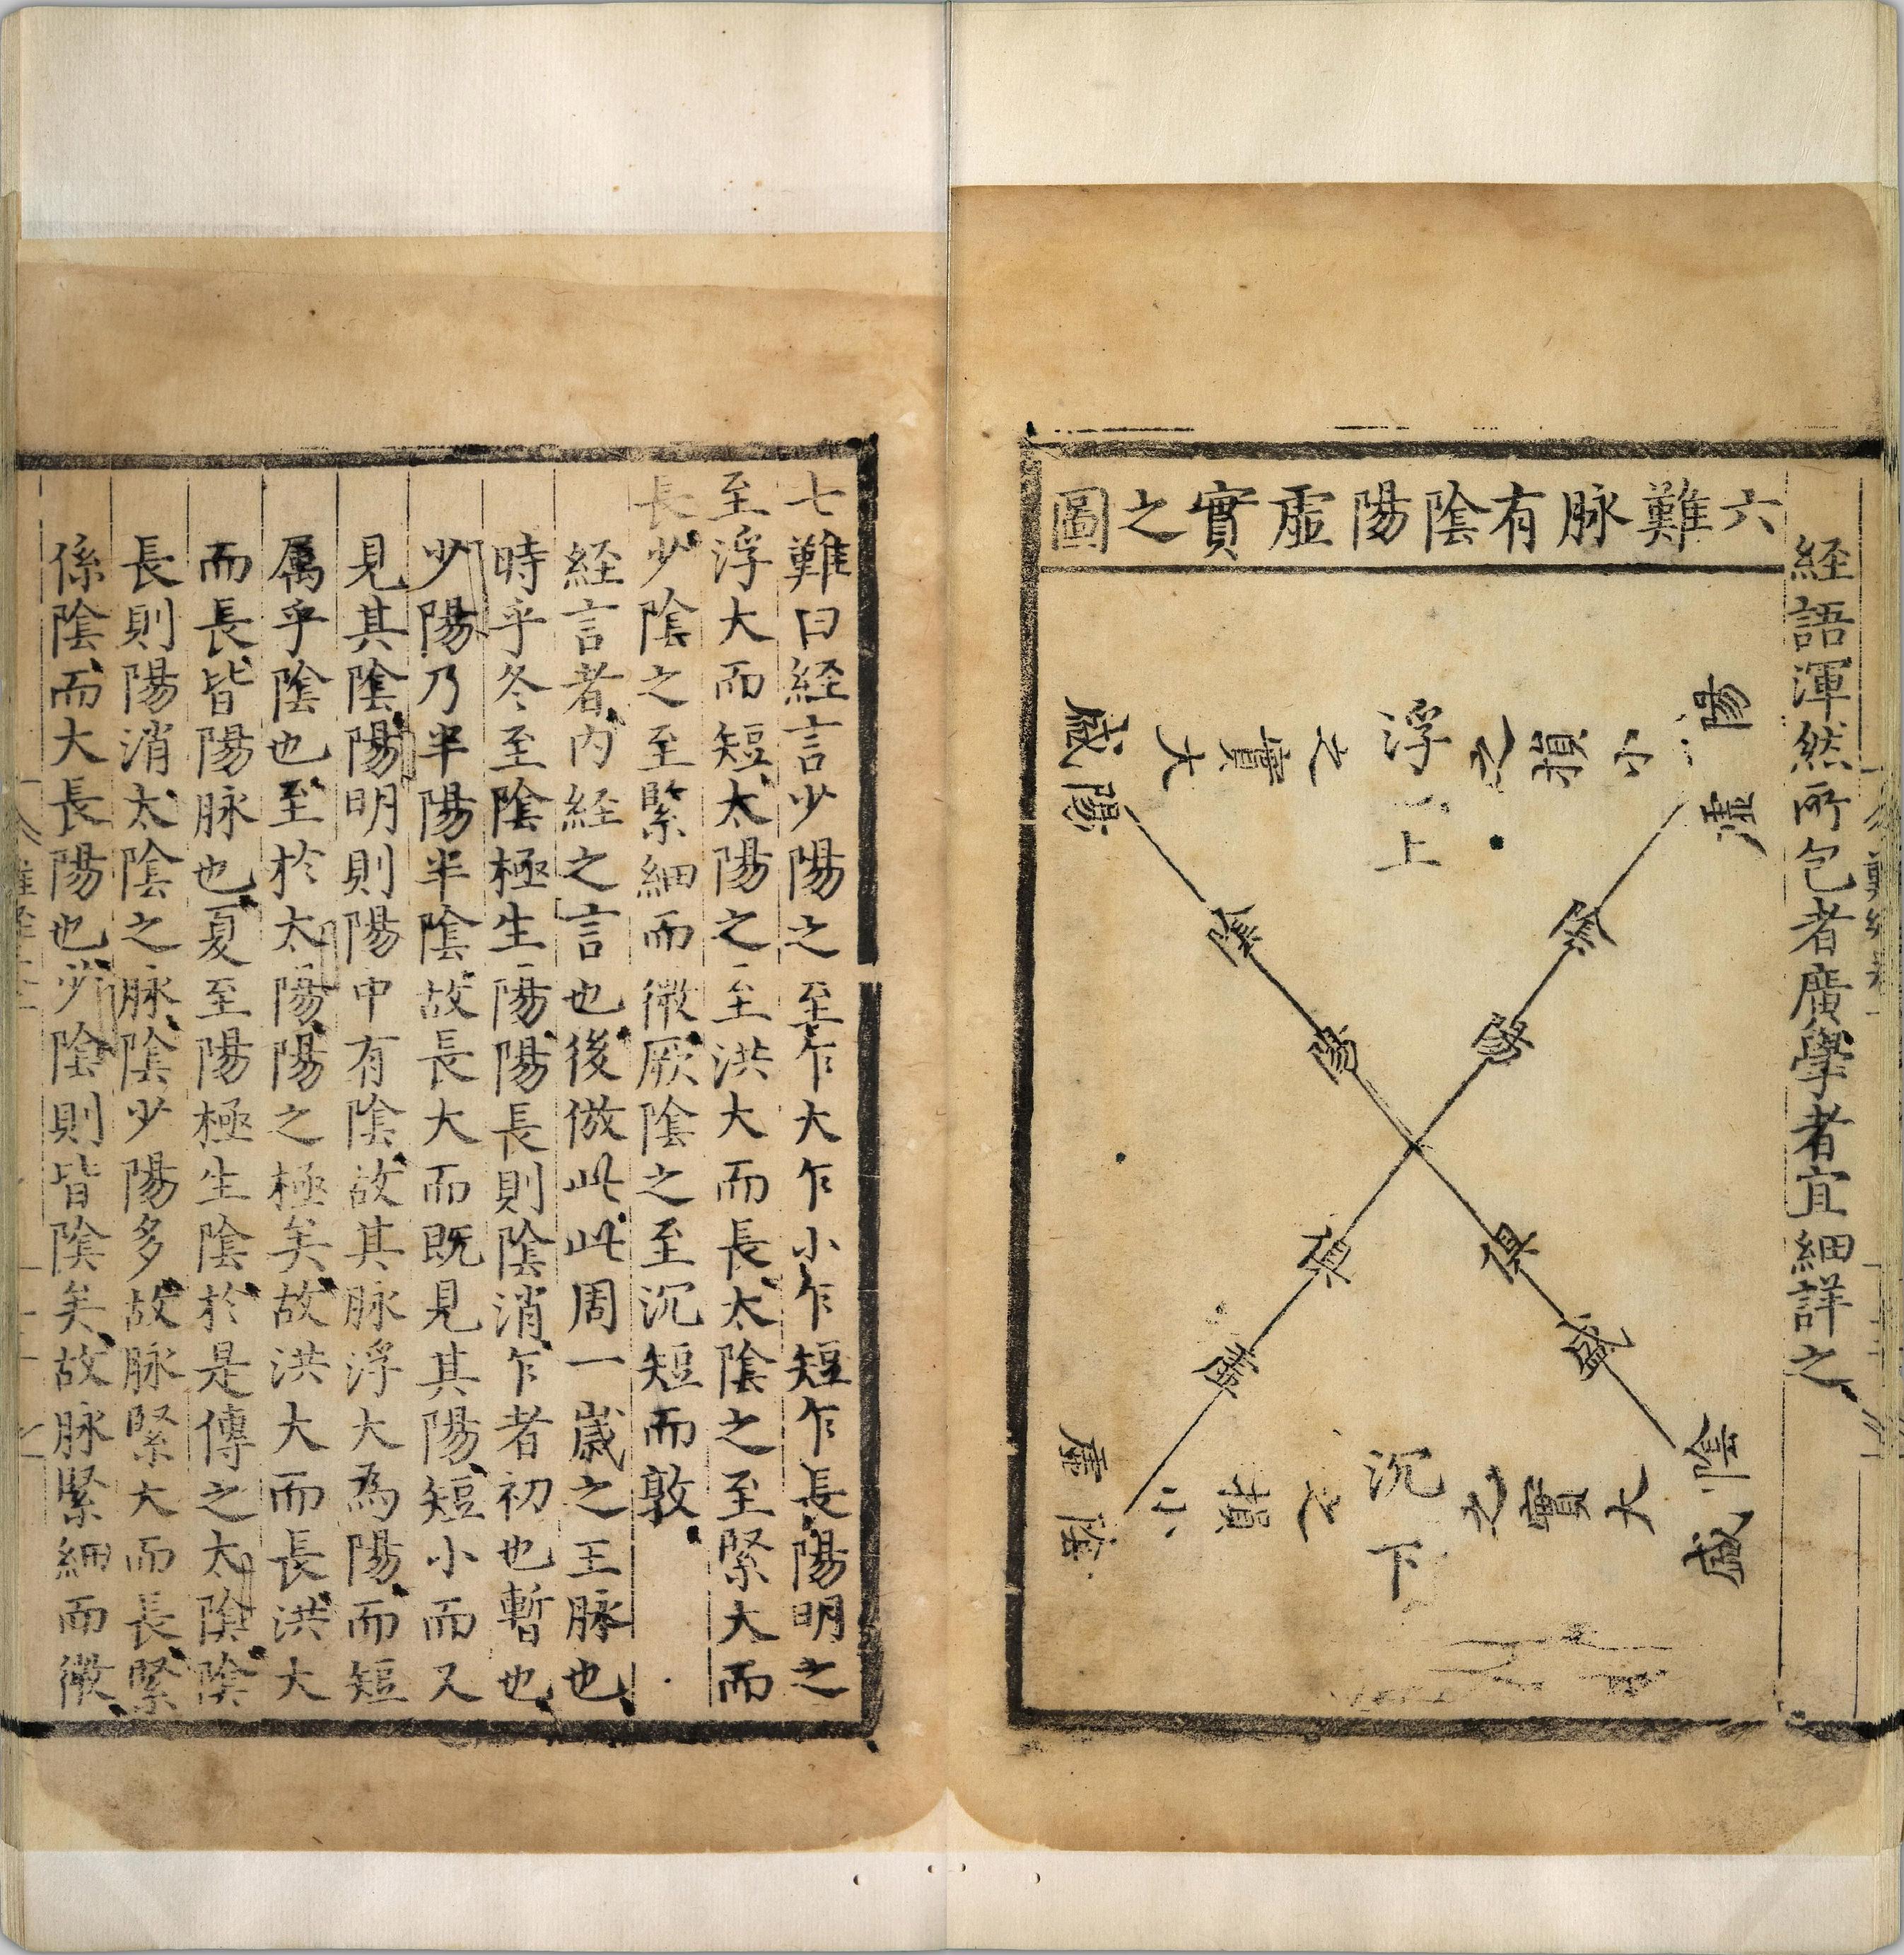 経語渾然所包者廣學者宜細詳之
六難脉有陰陽虛實之圖
陽虛
小損之
浮上
之實大
陽盛
陰陽俱虛
陽俱盛
陰盛
大實之
沉下
之損小
陰虛
七難曰経言少陽之至乍大乍小乍短乍長陽明之
至浮大而短太陽之至洪大而長太陰之至緊大而
長少陰之至緊細而微厥陰之至沉短而敦
経言者内経之言也後倣此此周一歲之王脉也
時乎冬至陰極生陽陽長則陰消乍者初也暫也
少陽乃半陽半陰故長大而既見其陽短小而又
見其陰陽明則陽中有陰故其脉浮大為陽而短
属乎陰也至於太陽陽之極矣故洪大而長洪大
而長皆陽脉也夏至陽極生陰於是傳之太陰陰
長則陽消太陰之脉陰少陽多故脉緊大而長緊
係陰而大長陽也少陰則皆陰矣故脉緊細而微